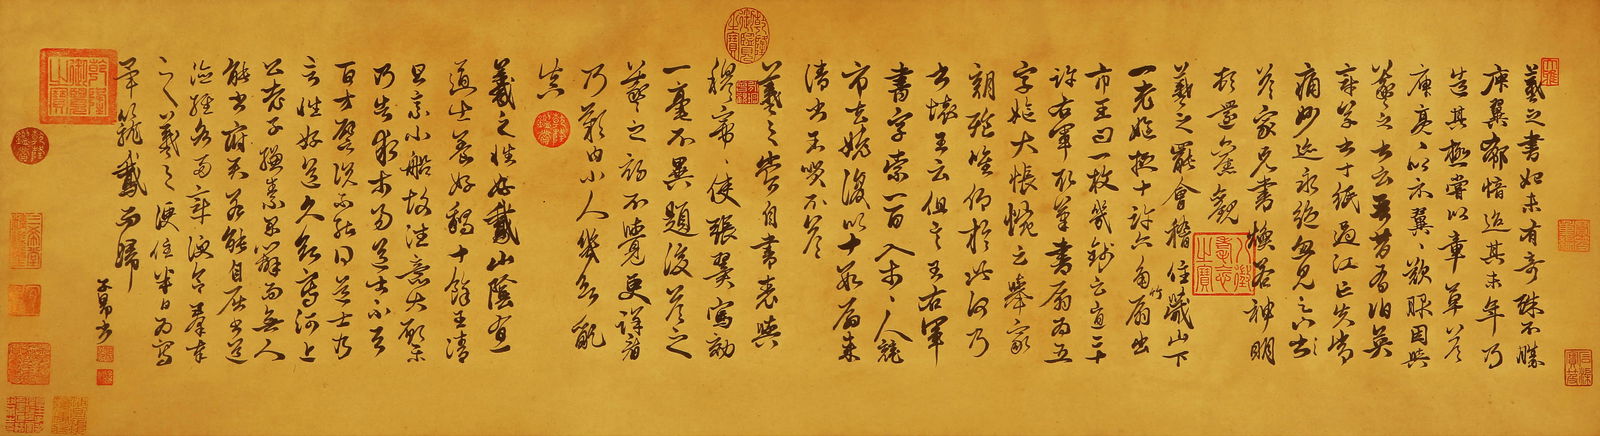 羲之書初未有奇殊不勝
庾翼郗愔迨其末年乃
造其極嘗以章草答
庾亮亮以示翼翼歎服因與
羲之書云吾昔有伯英
章草書十紙過江亡失常
痛妙迹永絕忽見足下
答家兄書煥若神明
頓還舊觀
羲之罷會稽住蕺山下
一老姥捉十許六角竹扇出
市王問一枚幾錢云直二十
許右軍取筆書扇為五
字姥大悵惋云舉家
朝飧唯仰於此何乃
書壞王云但言王右軍
書字索一百入市市人競
市去姥復以十數扇來
請書王笑不答
羲之嘗自書表與
穆帝帝使張翼寫効
一毫不異題後答之
羲之初不覺更詳看
乃歎曰小人幾欲亂
真
羲之性好鵝山陰有一
道士養好鵝十餘王清
旦乘小船故往意大願樂
乃告求市易道士不與
百方譬說不能得之道士乃
言性好道久欲寫河上
公老子縑素早辦而無人
能書府君若能自屈書道
德經各兩章便合羣奉
之羲之便住半日為寫
畢籠鵝而歸
子昂書
乾隆御覽之寶
八徵耄念之寶
乾隆鑑賞